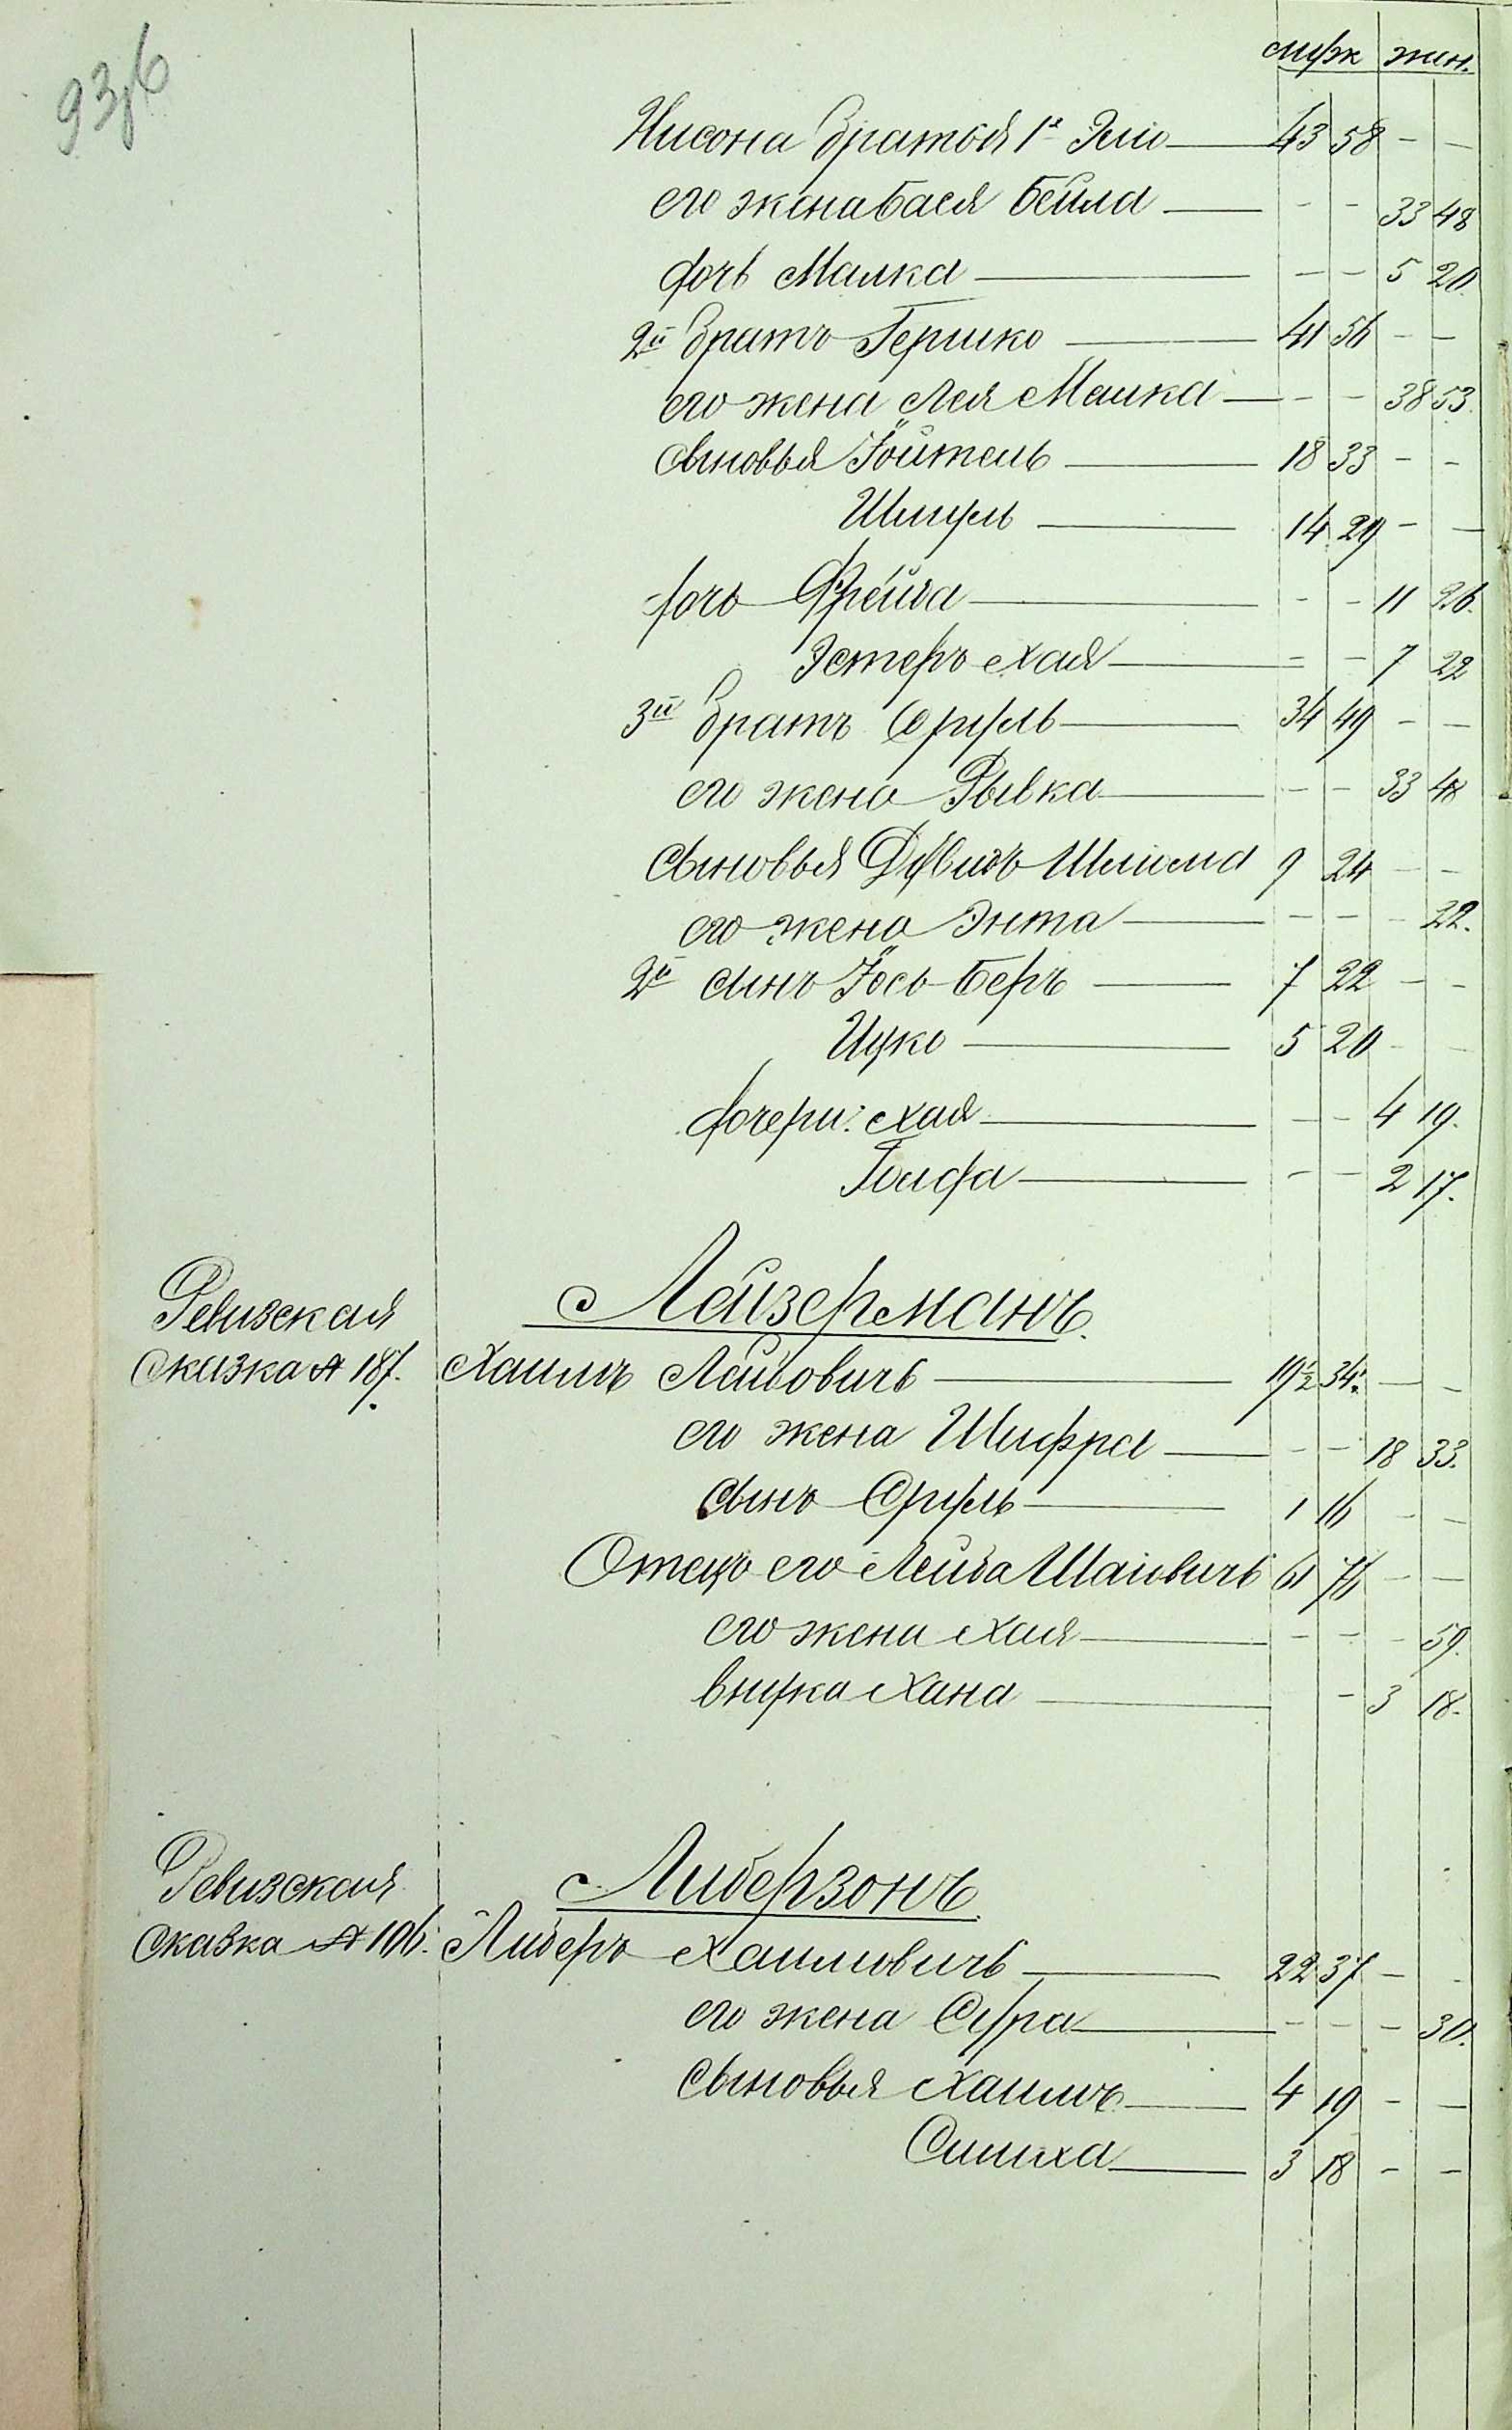 93об
муж жен.
Нисона братья 1й Элiо 43 58 - -
его жена Бася Бейла - - 33 48
дочь Малка - - 5 20
2й братъ Гершко 41 56 - -
его жена Лея Малка - - 38 53.
сыновья Іойтель 18 33 - -
Шмуль 14 29 - -
дочь Фрейда - - 11 26.
Эстеръ Хая - - 7 22
3й братъ Сруль 34 49 - -
его жена Рывка - - 33 48
сыновья Дувидъ Шліома 9 24 - -
его жена Энта - - - 22.
2й сынъ Іось-Беръ 7 22 - -
Ицко 5 20 - -
дочери: Хая - - 4 19.
Голда - - 2 17.
Лейзерманъ.
Ревизская
сказка № 187. Хаимъ Лейбовичъ 19½ 34½ - -
его жена Шифра - - 18 33.
сынъ Сруль 1 16 - -
Отецъ его Лейба Шаіовичъ 61 76 - -
его жена Хая - - - 59.
внука Хана - 3 18.
Либерзонъ.
Ревизская
сказка № 106. Либеръ Хаимовичъ 22 37 - -
его жена Сура - - - 30.
сыновья Хаимъ 4 19 - -
Симха 3 18 - -